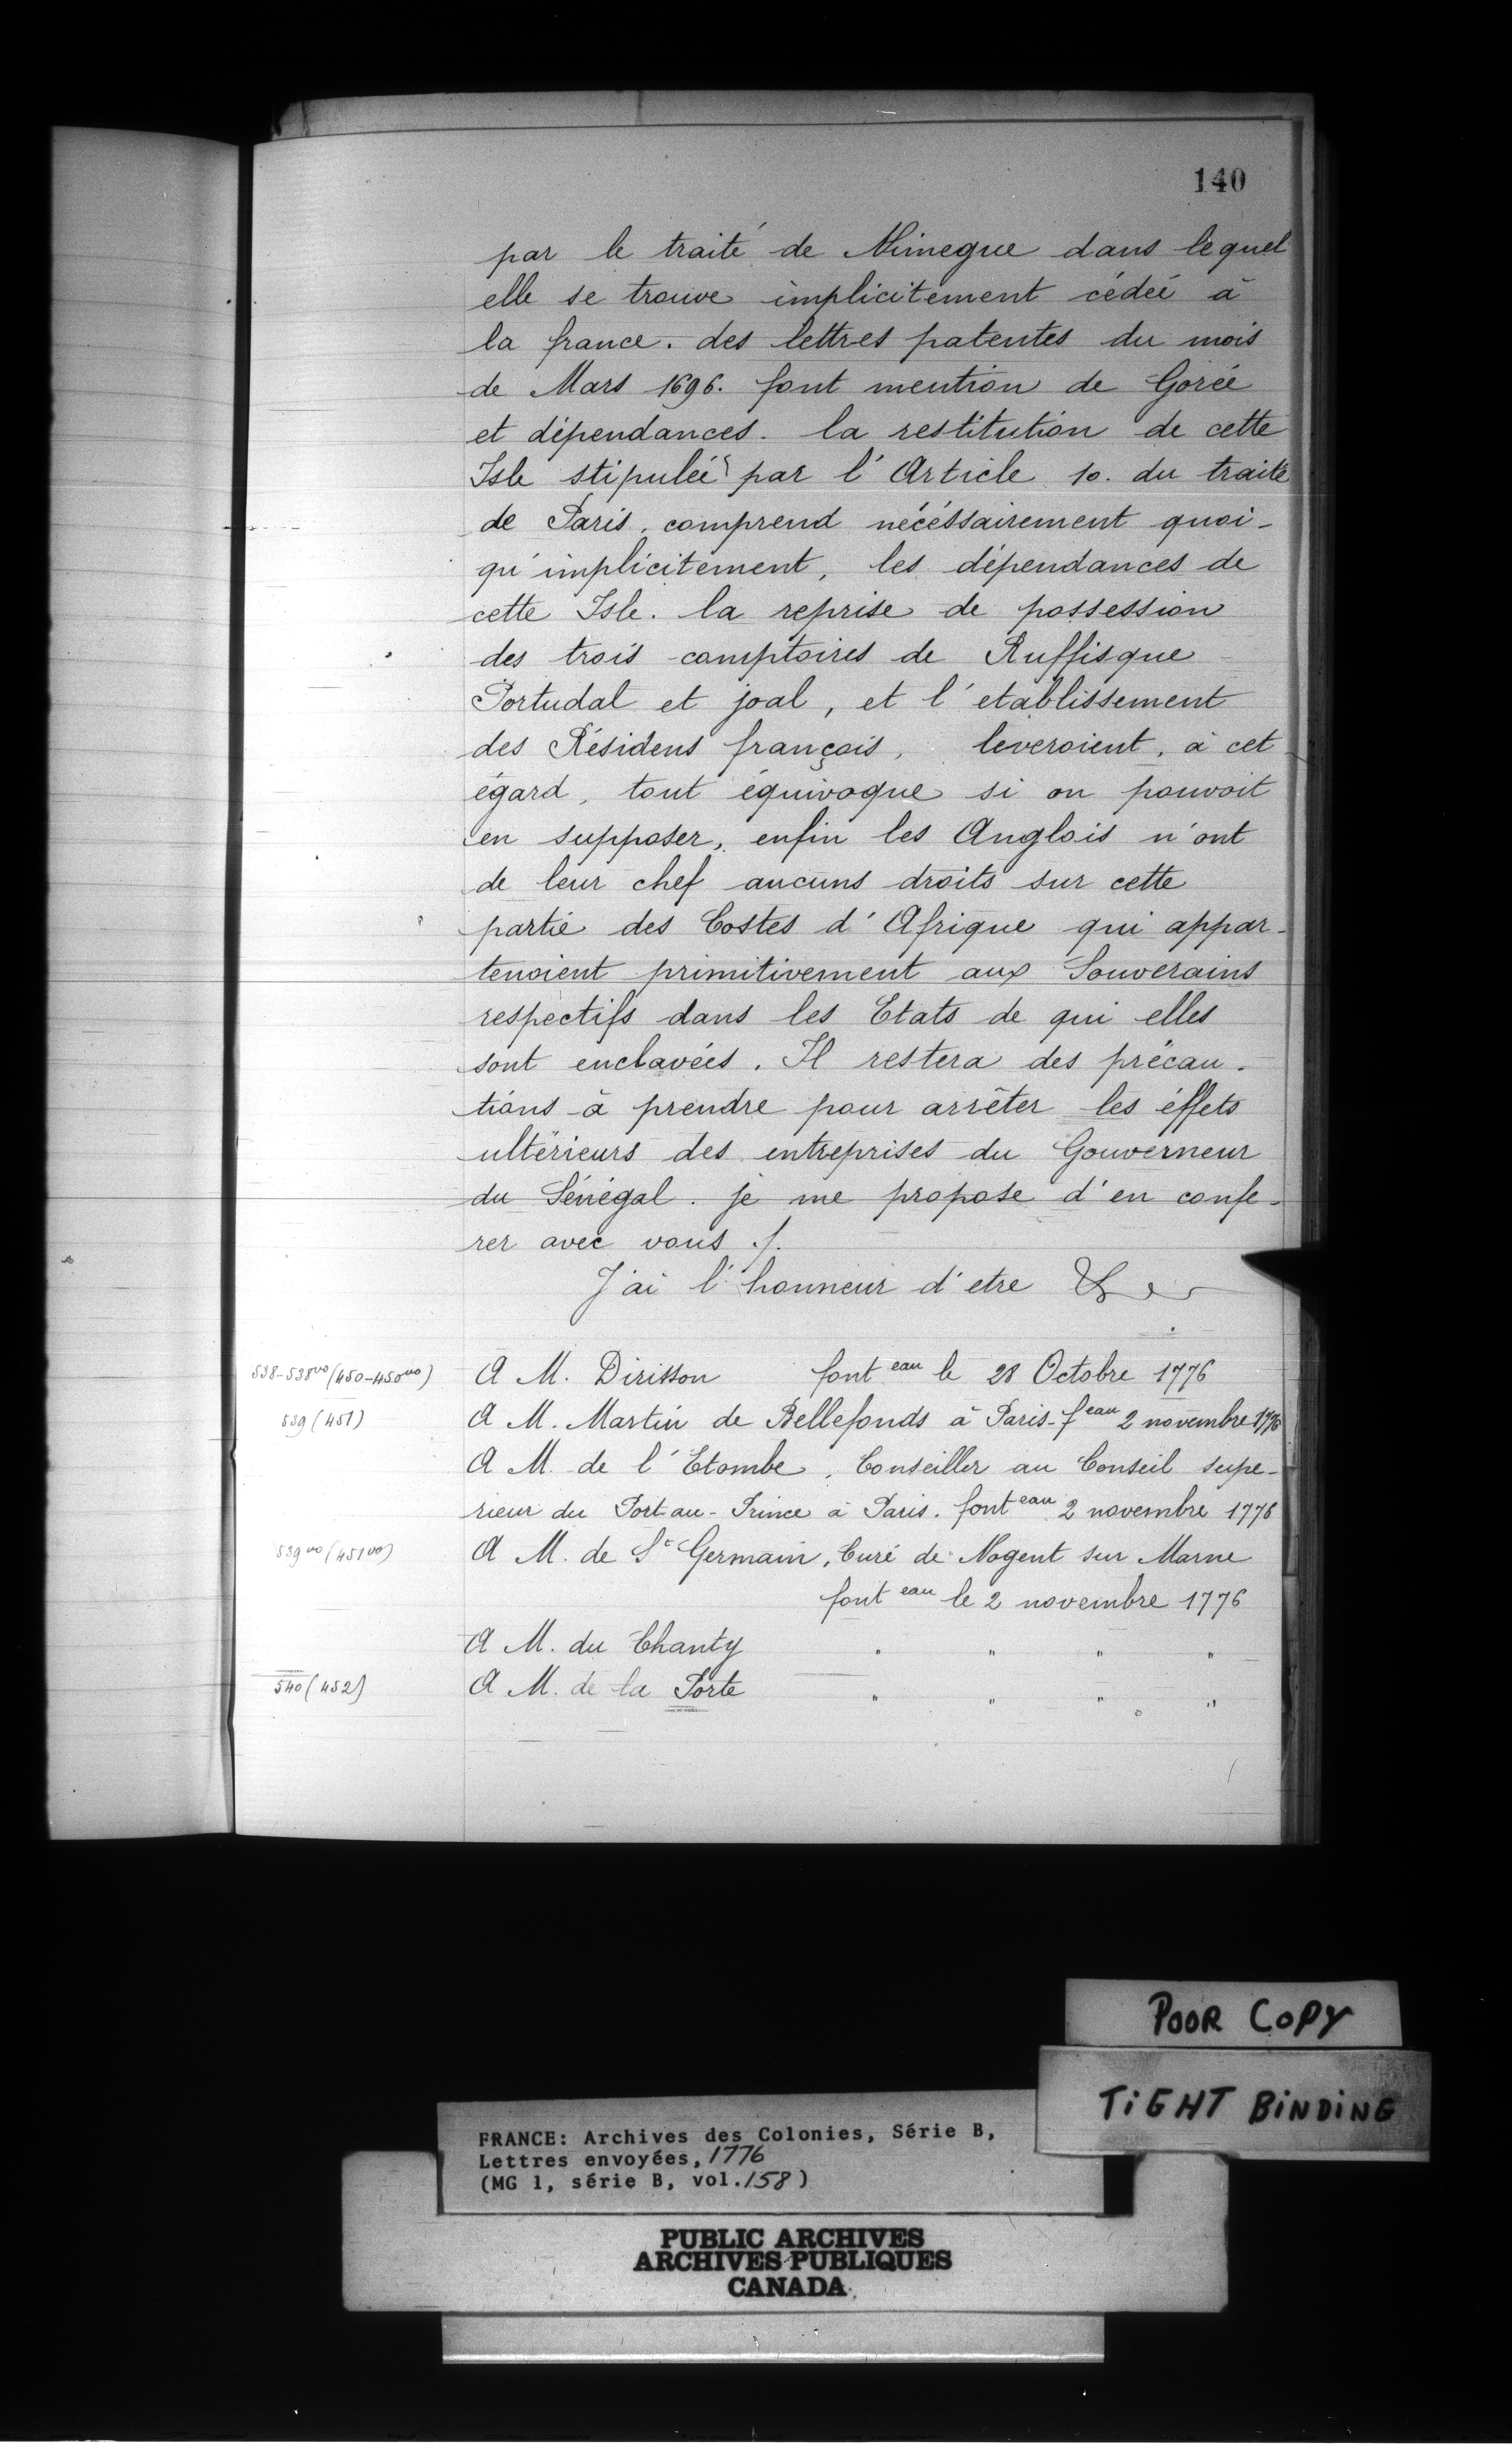 140
par le traité de Nimegue dans lequel
elle se trouve implicitement cédée à
la france. des lettres patentes du mois
de Mars 1696. font mention de Gorée
et dépendances. la restitution de cette
Isle stipulée par l'Article 10. du traité
de Paris, comprend nécéssairement quoi-
qu'implicitement, les dépendances de
cette Isle. la reprise de possession
des trois comptoires de Ruffisque
Portudal et joal, et l'etablissement
des Résidens françois, leveroient, à cet
égard, tout équivoque si on pouvoit
en supposer, enfin les Anglois n'ont
de leur chef aucuns droits sur cette
partie des Costes d'Afrique qui appar-
tenoient primitivement aux Souverains
respectifs dans les Etats de qui elles
sont enclavées. Il restera des précau-
tions à prendre pour arrêter les éffets
ultérieurs des entreprises du Gouverneur
du Sénégal. je me propose d'en confe-
rer avec vous ./.
J'ai l'honneur d'etre &
538-538vo (450-450vo) A M. Dirisson font eau le 28 Octobre 1776
539 (451) A M. Martin de Bellefonds à Paris - f eau 2 novembre 1776
A M. de l'Etombe, Conseiller au Conseil supe-
rieur du Port-au-Prince à Paris. font eau 2 novembre 1776
539vo (451vo) A M. de St Germain, Curé de Nogent sur Marne
font eau le 2 novembre 1776
A M. du Chanty " " " "
540 (452) A M. de la Porte " " " "
POOR COPY
TIGHT BINDING
FRANCE: Archives des Colonies, Série B,
Lettres envoyées, 1776
(MG 1, série B, vol. 158)
PUBLIC ARCHIVES
ARCHIVES PUBLIQUES
CANADA